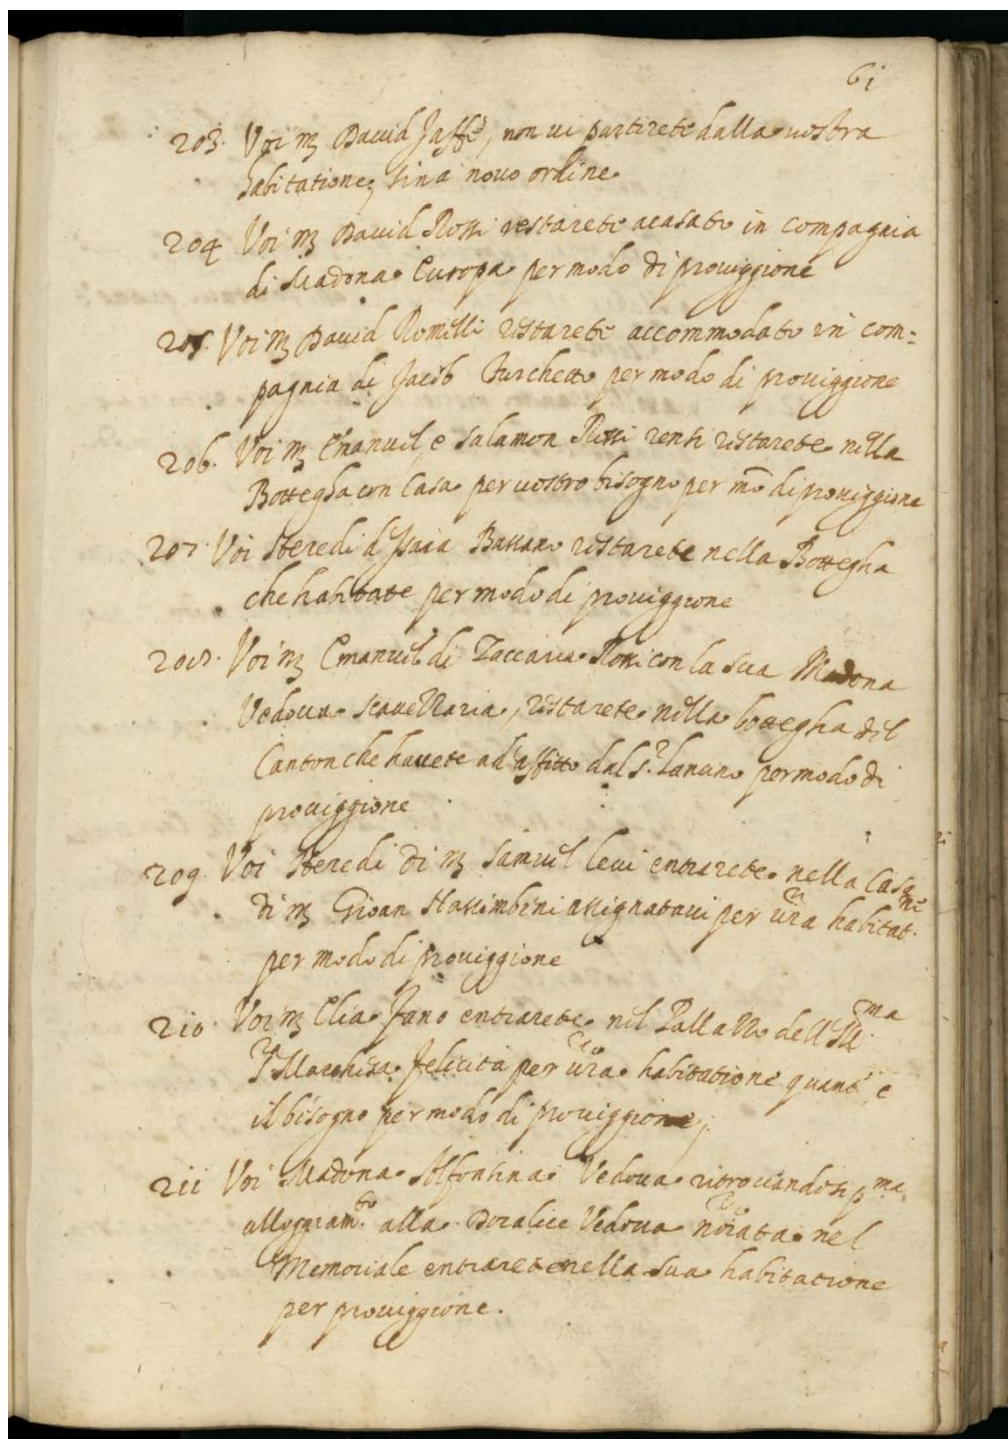 61
203. Voi m David Jaffe, non vi partirete dalla vostra
habitatione, sin a novo ordine
204 Voi m David Rossi restarete acasato in compagnia
di Madona Europa per modo di proviggione
205. Voi m David Romilli restarete accommodato in com=
pagnia di Jacob Turchetto per modo di proviggione
206. Voi m Emanuel, e Salamon Rossi restarete nella
Bottegha con Casa per vostro bisogno per mo di proviggione
207. Voi Heredi d'Isaia Bassano restarete nella Bottegha
che habitate per modo di proviggione
208. Voi m Emanuel di Zaccaria Rossi con la sua Madona
Vedova, restarete nella bottegha del
Canton che havete ad affitto dal Sr. per modo di
proviggione
209. Voi Heredi di m Samuel levi entrarete nella Casa
di m Gioan assignatavi per vra habitatne.
per modo di proviggione
210. Voi m Elia Fano entrarete nel Pallazzo dell'Illma.
Sra Marchesa Felicita per vra habitatione quant'e
il bisogno per modo di proviggione,
211 Voi Madona Vedova ritrovandosi pma
alloggiamto. alla Doralice Vedova noiata nel
Memoriale entrarete nella sua habitatione
per proviggione.